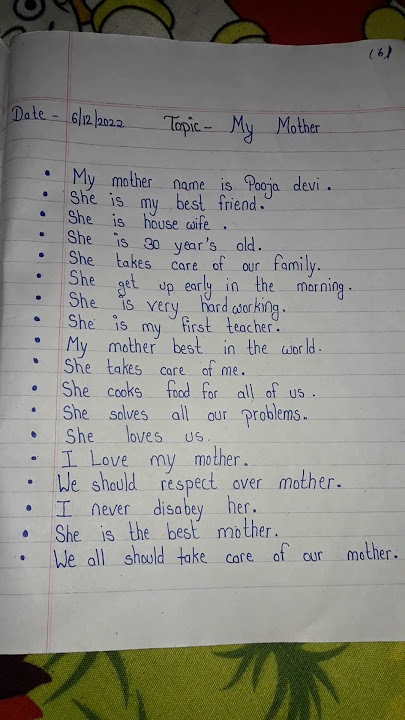 (6)
Date - 6/12/2022 Topic - My Mother
• My mother name is Pooja devi.
• She is my best friend.
• She is house wife.
• She is 30 year's old.
• She takes care of our family.
• She get up early in the morning.
• She is very hard working.
• She is my first teacher.
• My mother best in the world.
• She takes care of me.
• She cooks food for all of us.
• She solves all our problems.
• She loves us.
• I Love my mother.
• We should respect over mother.
• I never disabey her.
• She is the best mother.
• We all should take care of our mother.